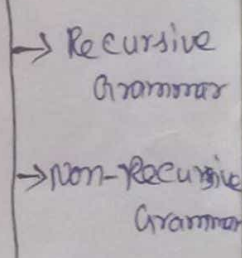 Recursive
Grammar
Non-Recursive
Grammar